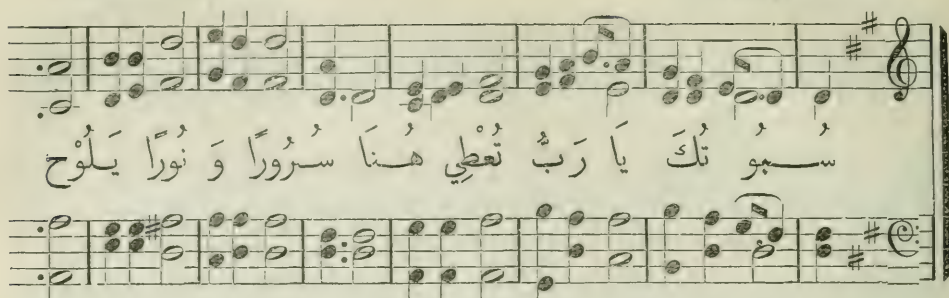 سُـبُو تُكَ يَا رَبُّ تُعْطِي هُـنَا سُـرُورًا وَ نُورًا يَـلُوْح